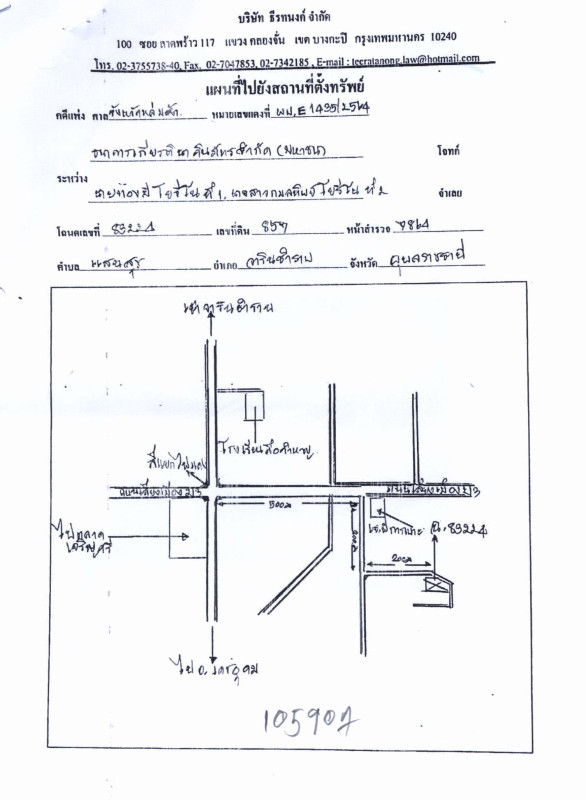 บริษัท ธีรทนงค์ จำกัด
100 ซอย ลาดพร้าว 117 แขวง คลองจั่น เขต บางกะปิ กรุงเทพมหานคร 10240
โทร. 02-3755738-40, Fax. 02-7047853, 02-7342185 , E-mail : teeratanong.law@hotmail.com
แผนที่ไปยังสถานที่ตั้งทรัพย์
คดีแพ่ง ศาล จังหวัดหล่มสัก หมายเลขแดงที่ ผบ.E1435/2564
ธนาคารเกียรตินาคินภัทร จำกัด (มหาชน) โจทก์
ระหว่าง
ที่ 1, ที่ 2 จำเลย
โฉนดเลขที่ 83224 เลขที่ดิน 859 หน้าสำรวจ 7864
ตำบล แสนสุข อำเภอ วารินชำราบ จังหวัด อุบลราชธานี
เข้าวารินชำราบ
โรงเรียนลือคำหาญ
สี่แยกไฟแดง
ถนนเลี่ยงเมือง 213
ถนนเลี่ยงเมือง 213
500ม
ไปตลาด
เจริญศรี
200ม
ฉ.83224
200ม
ไป อ.เดชอุดม
105907